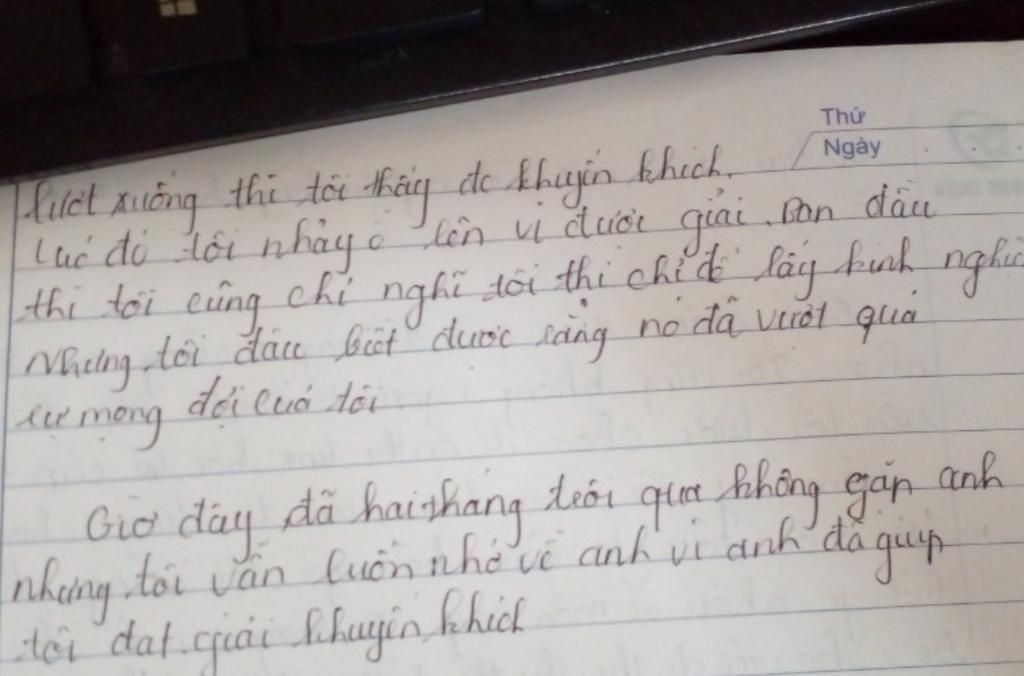 Thứ
Ngày
lướt xuống thì tôi thấy đc khuyến khích.
Lúc đó tôi nhảy ô lên vì được giải. Ban đầu
thì tôi cũng chỉ nghĩ tôi thi chỉ để lấy kinh nghiệ
Nhưng tôi đâu biết được rằng nó đã vượt quá
sự mong đợi của tôi
Giờ đây đã hai tháng trôi qua không gặp anh
nhưng tôi vẫn luôn nhớ về anh vì anh đã giúp
tôi đạt giải khuyến khích